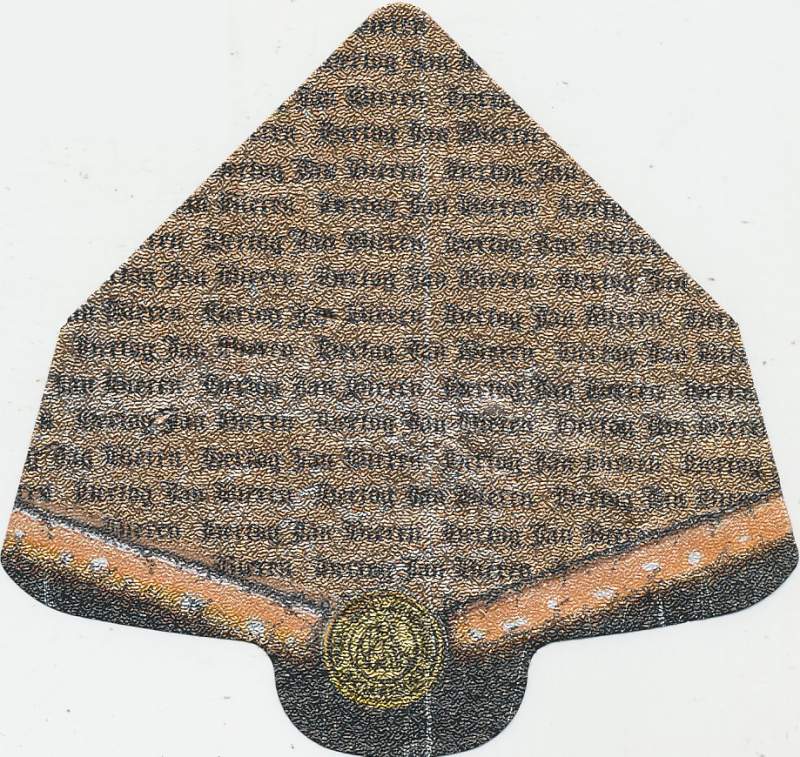 Bieren
Hertog Jan
Jan Bieren Hertog
Hertog Jan Bieren
Hertog Jan Bieren Hertog Jan
Jan Bieren Hertog Jan Bieren Hertog
Hertog Jan Bieren Hertog Jan Bieren
Hertog Jan Bieren Hertog Jan Bieren Hertog Jan
Jan Bieren Hertog Jan Bieren Hertog Jan Bieren
Hertog Jan Bieren Hertog Jan Bieren Hertog Jan Bieren
Jan Bieren Hertog Jan Bieren Hertog Jan Bieren Hertog
Hertog Jan Bieren Hertog Jan Bieren Hertog Jan Bieren
Jan Bieren Hertog Jan Bieren Hertog Jan Bieren Hertog
Hertog Jan Bieren Hertog Jan Bieren Hertog Jan Bieren
Bieren Hertog Jan Bieren Hertog Jan Bieren
Bieren Hertog Jan Bieren